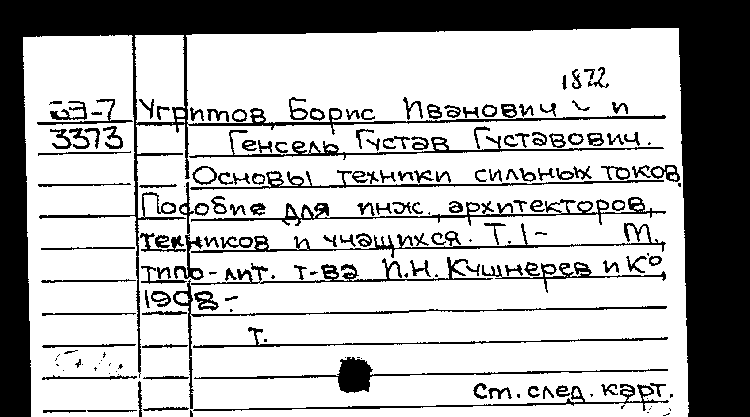 1872
Э-7 Угримов, Борис Иванович и
3373 Генсель, Густав Густавович.
Основы техники сильных токов.
Пособие для инж., архитекторов,
техников и учащихся. Т. 1- М.,
типо-лит. т-ва И.Н. Кушнерев и К°,
1908-
т.
См. след. карт.